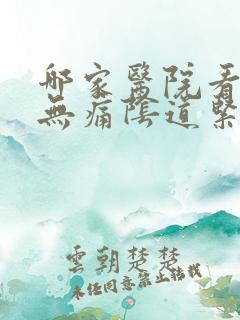 哪家醫院看
無痛陰道緊
雲朝楚楚
未经同意禁止转载